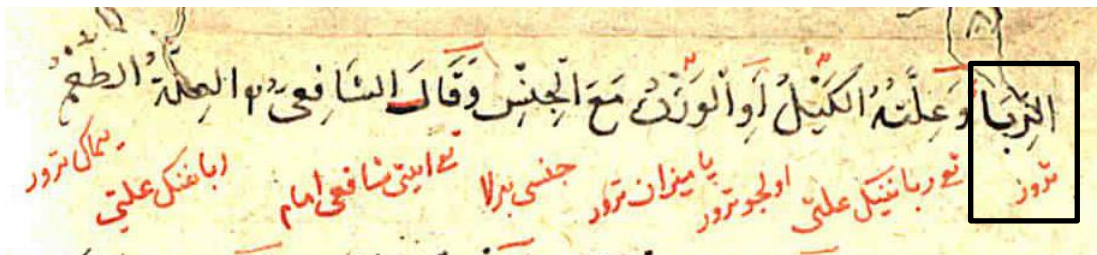 الرِّبَا وَعِلَّتُهُ الكَيْلُ أَوِ الْوَزْنُ مَعَ الْجِنْسِ وَقَالَ الشَافِعِىُّ العِلَّةُ الطَّعْمُ
ترور تع ربا ننيك علتى اولجو ترور يا ميزان ترور جنسى برلا تع ايتى شافعى امام ربا ننك علتى يماك ترور